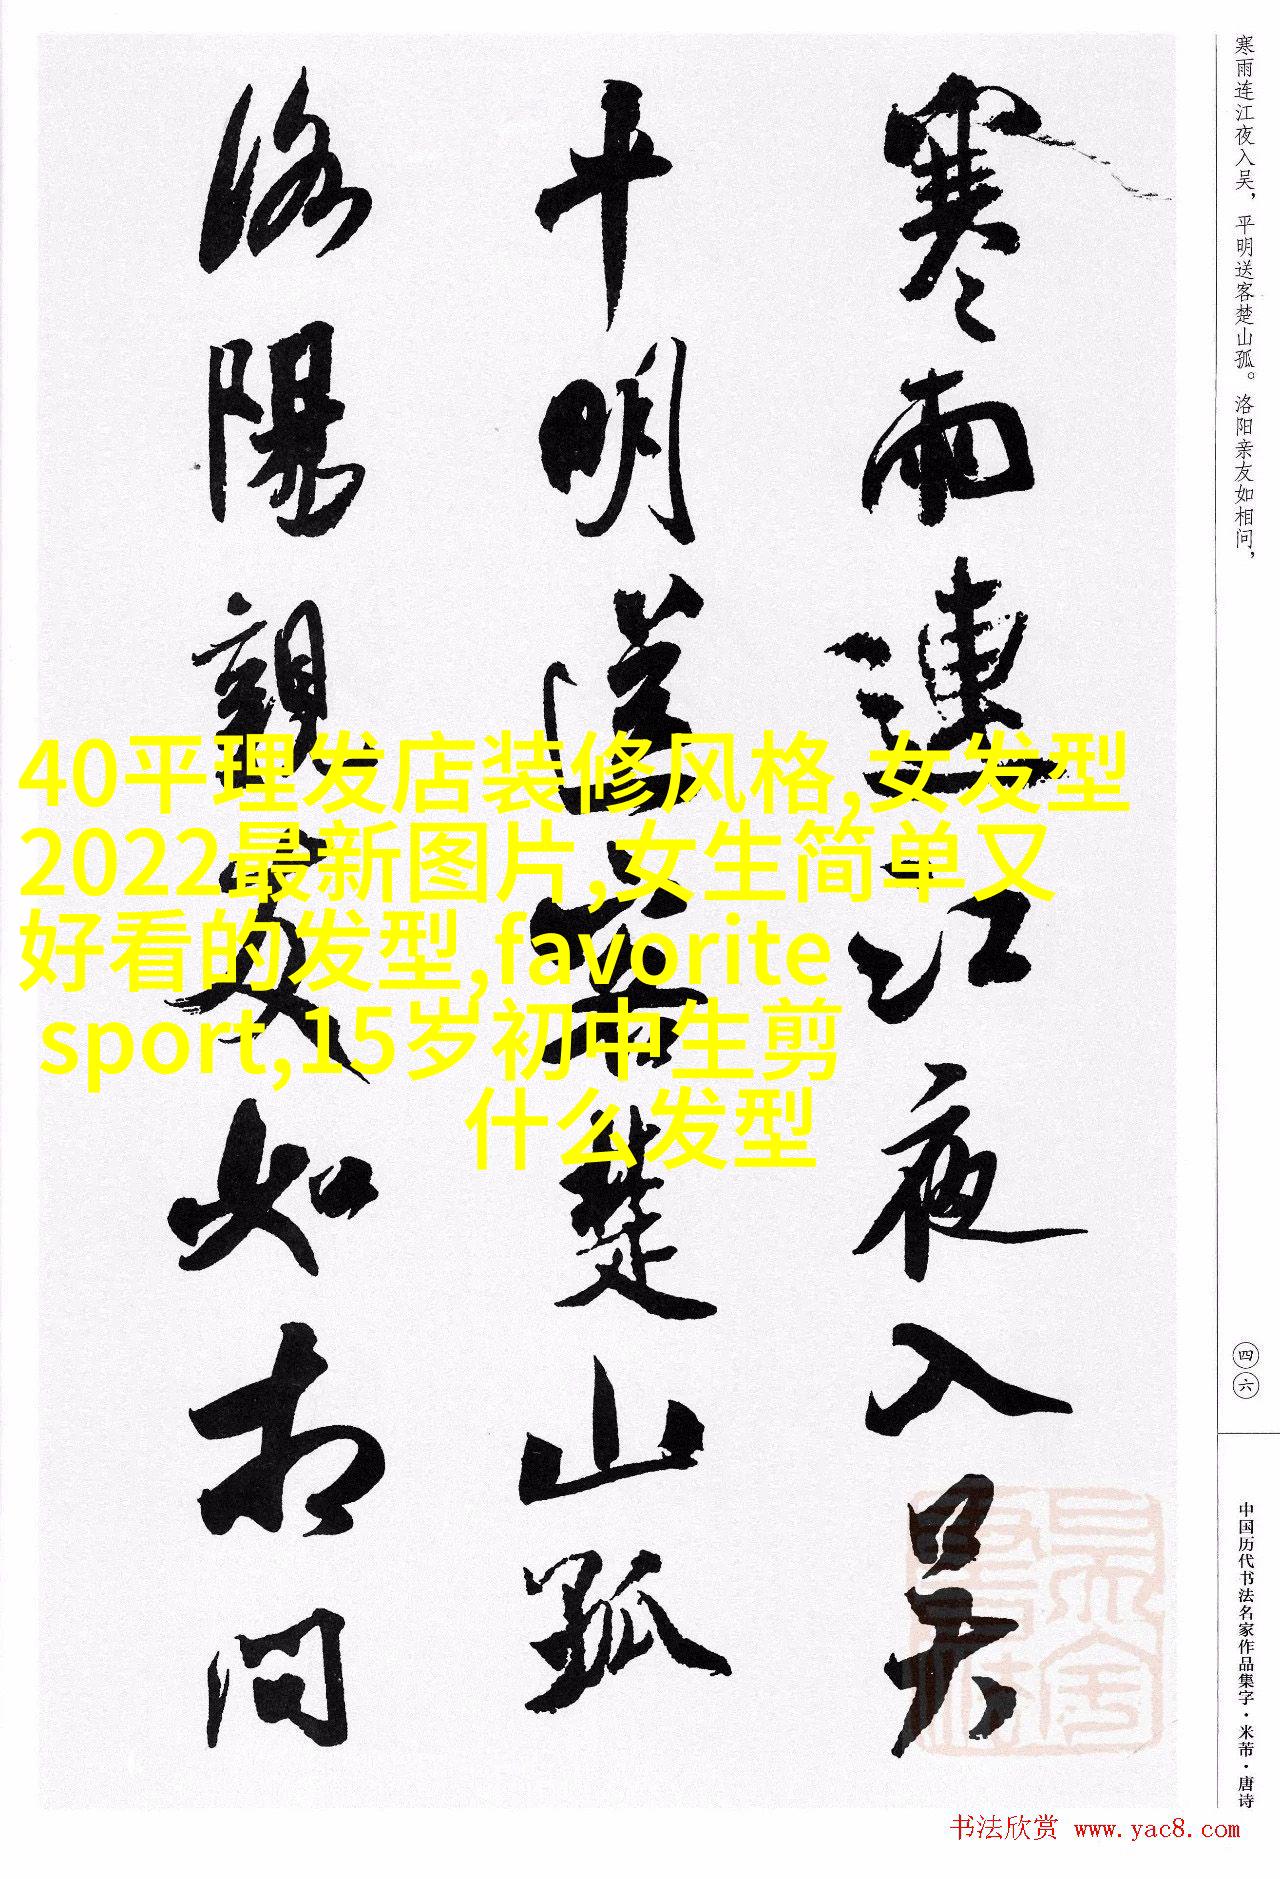 寒雨連江夜入吴
平明送客楚山孤
洛陽親友如相问
寒雨连江夜入吴，平明送客楚山孤。洛阳亲友如相问，
40平理发店装修风格,女发型
2022最新图片,女生简单又
好看的发型,favorite
sport,15岁初中生剪
什么发型
四六
中国历代书法名家作品集字·米芾·唐诗
书法欣赏 www.yac8.com